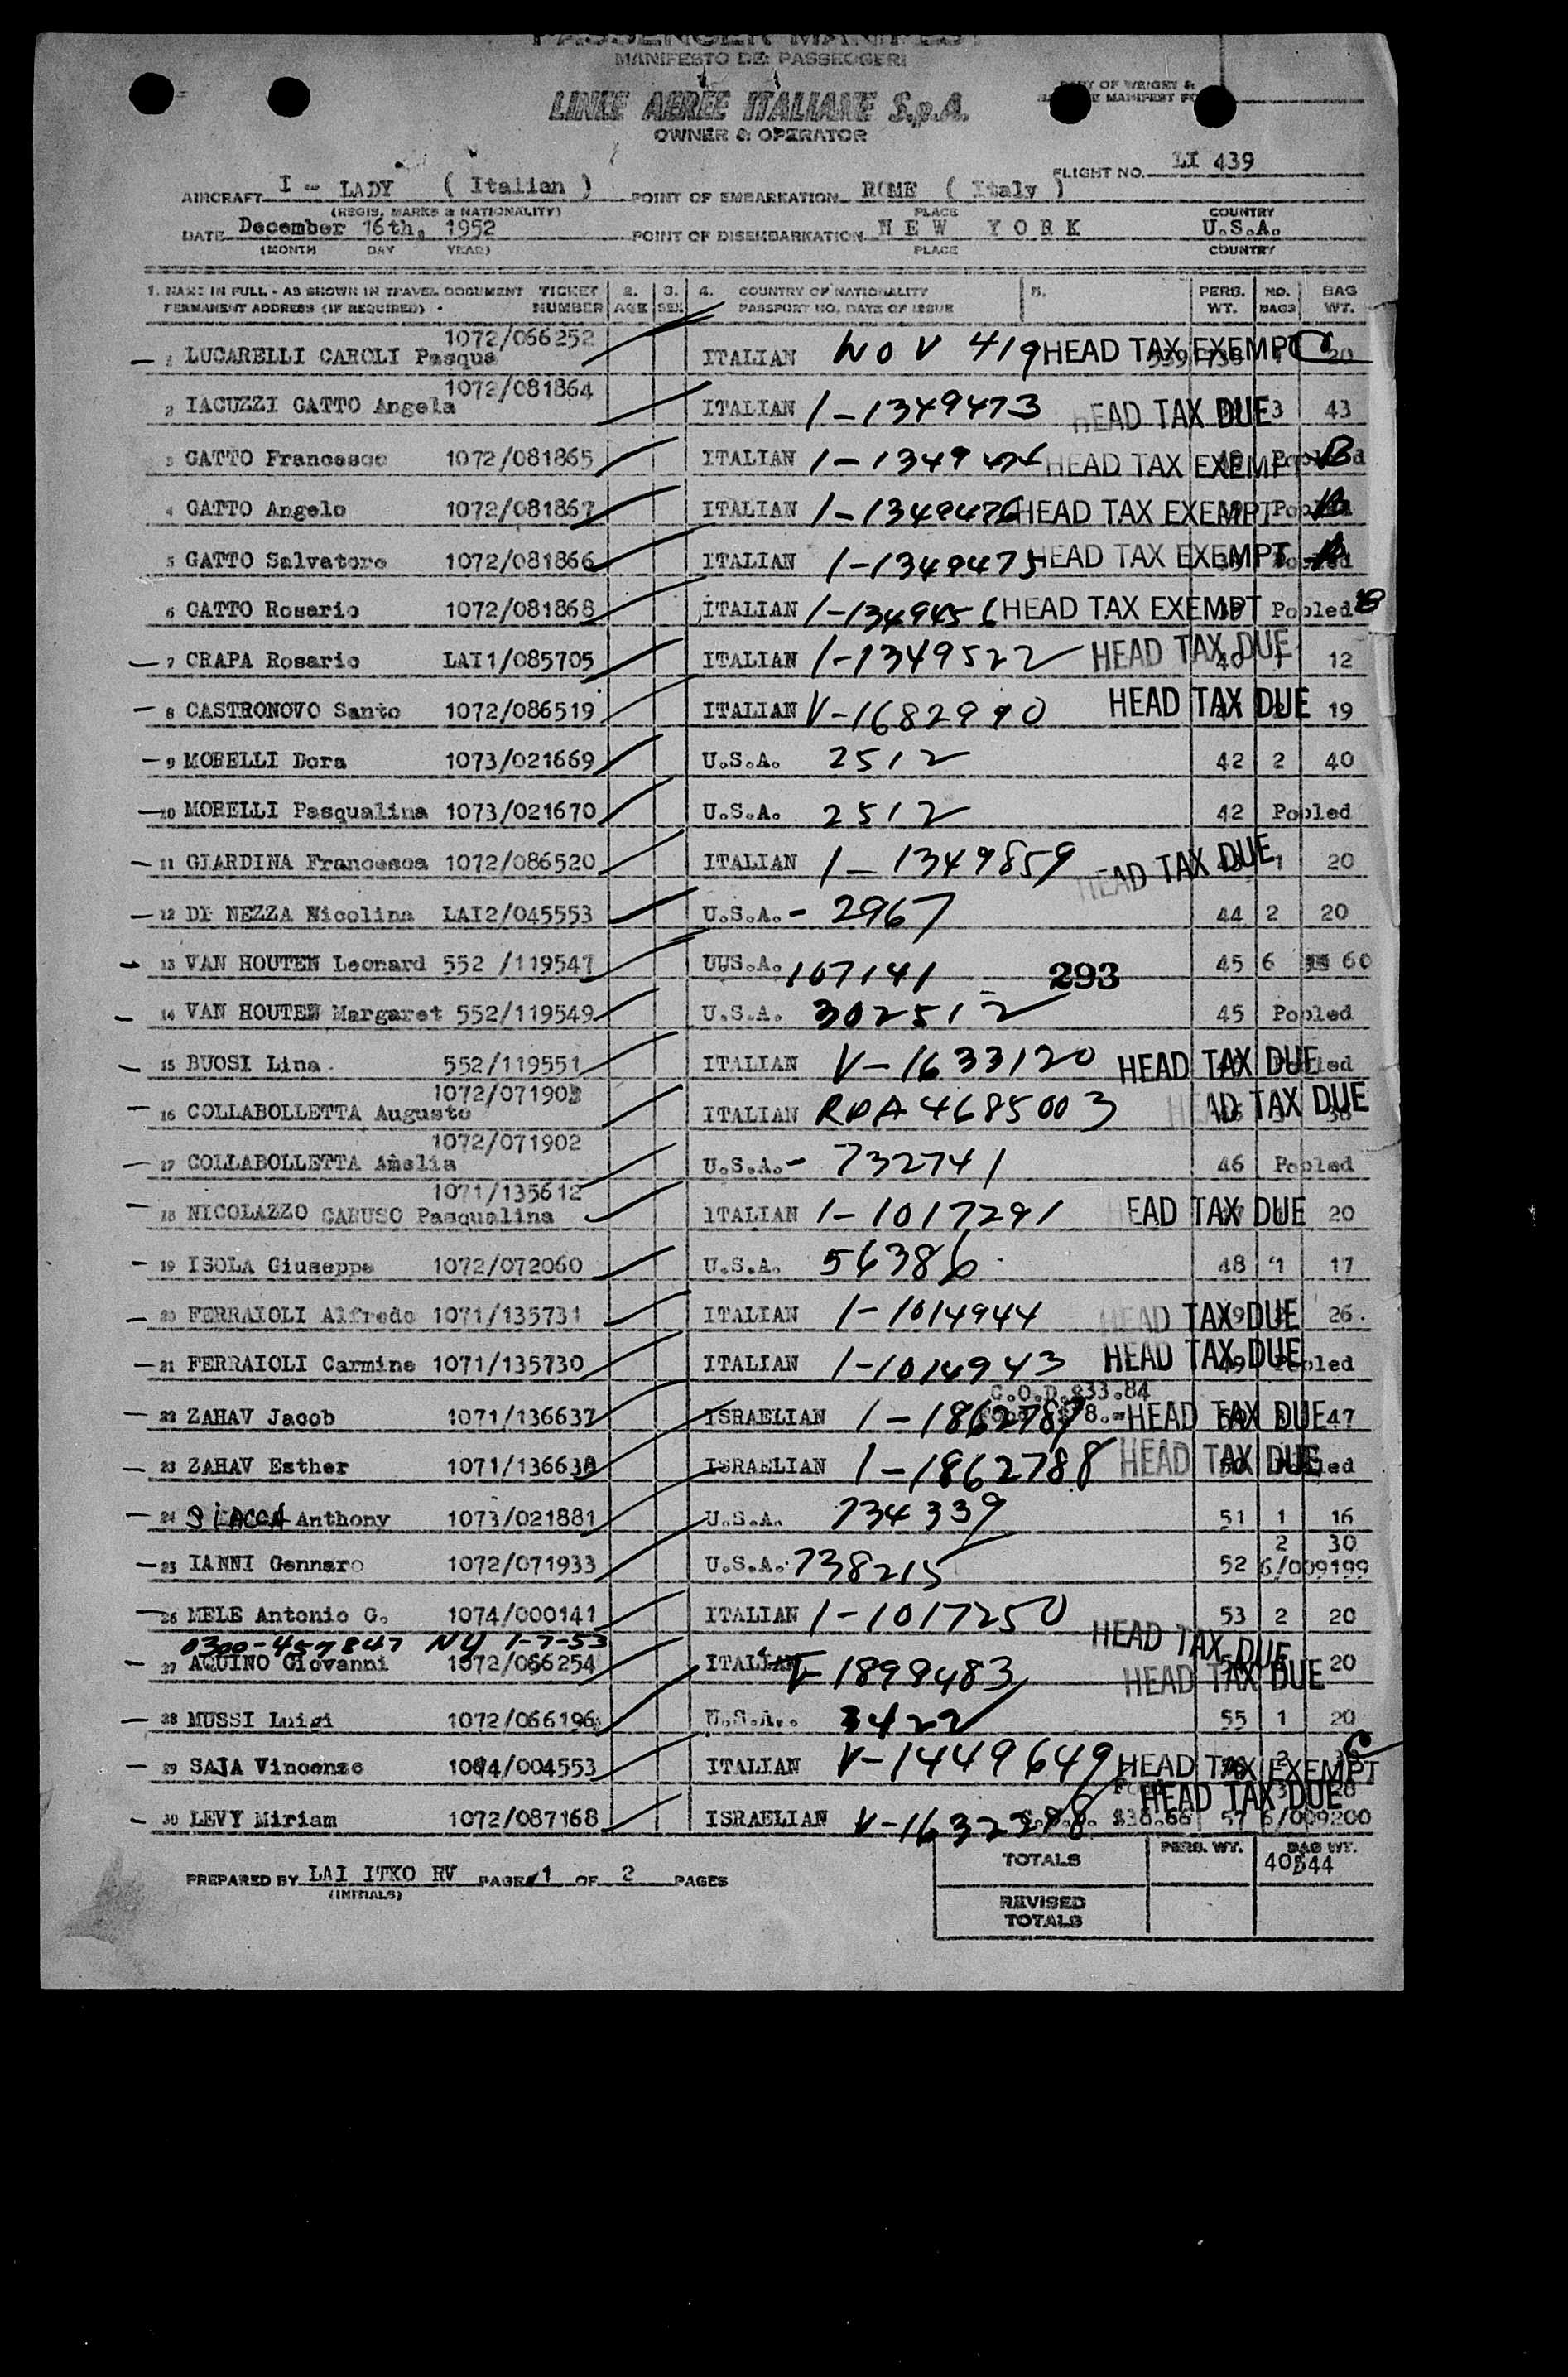 PASSENGER MANIFEST
MANIFESTO DEI PASSEGGERI
LINEE AEREE ITALIANE S.p.A.
OWNER & OPERATOR
PART OF WEIGHT &
MANIFEST FO
FLIGHT NO. LI 439
AIRCRAFT I - LADY ( Italian ) POINT OF EMBARKATION ROME ( Italy )
(REGIS, MARKS & NATIONALITY) PLACE COUNTRY
DATE December 16th, 1952 POINT OF DISEMBARKATION NEW YORK U.S.A.
(MONTH DAY YEAR) PLACE COUNTRY
1. NAME IN FULL - AS SHOWN IN TRAVEL DOCUMENT TICKET 2. 3. 4. COUNTRY OF NATIONALITY 5. PERS. NO. BAG
PERMANENT ADDRESS (IF REQUIRED) - NUMBER AGE SEX PASSPORT NO. DATE OF ISSUE WT. BAGS WT.
1072/066252
1 LUCARELLI CAROLI Pasqua ITALIAN NOV 419 HEAD TAX EXEMPT 20
1072/081864
2 IACUZZI GATTO Angela ITALIAN 1-1349473 HEAD TAX DUE 3 43
3 GATTO Francesco 1072/081865 ITALIAN 1-1349474 HEAD TAX EXEMPT Pooled
4 GATTO Angelo 1072/081867 ITALIAN 1-1349476 HEAD TAX EXEMPT Pooled
5 GATTO Salvatore 1072/081866 ITALIAN 1-1349475 HEAD TAX EXEMPT Pooled
6 GATTO Rosario 1072/081868 ITALIAN 1-1349456 HEAD TAX EXEMPT 39 Pooled
7 CRAPA Rosario LAI1/085705 ITALIAN 1-1349522 HEAD TAX DUE 40 1 12
8 CASTRONOVO Santo 1072/086519 ITALIAN V-1682990 HEAD TAX DUE 41 19
9 MORELLI Dora 1073/021669 U.S.A. 2512 42 2 40
10 MORELLI Pasqualina 1073/021670 U.S.A. 2512 42 Pooled
11 GIARDINA Francesca 1072/086520 ITALIAN 1-1349859 HEAD TAX DUE 43 1 20
12 DI NEZZA Nicolina LAI2/045553 U.S.A. - 2967 44 2 20
13 VAN HOUTEN Leonard 552 /119547 UUS.A. 107141 293 45 6 60
14 VAN HOUTEN Margaret 552/119549 U.S.A. 302512 45 Pooled
15 BUOSI Lina 552/119551 ITALIAN V-1633120 HEAD TAX DUE Pooled
1072/071903
16 COLLABOLLETTA Augusto ITALIAN RDA 4685003 HEAD TAX DUE
1072/071902
17 COLLABOLLETTA Amelia U.S.A. - 732741 46 Pooled
1071/135612
18 NICOLAZZO CARUSO Pasqualina ITALIAN 1-1017291 EAD TAX DUE 20
19 ISOLA Giuseppe 1072/072060 U.S.A. 56386 48 1 17
20 FERRAIOLI Alfredo 1071/135731 ITALIAN 1-1014944 HEAD TAX DUE 49 2 26
21 FERRAIOLI Carmine 1071/135730 ITALIAN 1-1014943 HEAD TAX DUE 49 Pooled
C.O.D. $33.84
22 ZAHAV Jacob 1071/136637 ISRAELIAN 1-1862787 HEAD TAX DUE 47
23 ZAHAV Esther 1071/136638 ISRAELIAN 1-1862788 HEAD TAX DUE 50 Pooled
24 SIACCA Anthony 1073/021881 U.S.A. 734339 51 1 16
2 30
25 IANNI Gennaro 1072/071933 U.S.A. 738215 52 6/009199
26 MELE Antonio G. 1074/000141 ITALIAN 1-1017250 53 2 20
HEAD TAX DUE
0300-457847 NY 1-7-53
27 AQUINO Giovanni 1072/066254 ITALIAN V-1899483 HEAD TAX DUE 20
28 MUSSI Luigi 1072/066196 U.S.A. 3422 55 1 20
29 SAJA Vincenzo 1074/004553 ITALIAN V-1449649 HEAD TAX EXEMPT
HEAD TAX DUE
30 LEVY Miriam 1072/087168 ISRAELIAN V-1632298 $38.66 57 6/009200
PREPARED BY LAI ITKO RV PAGE 1 OF 2 PAGES
(INITIALS)
TOTALS PERS. WT. BAG WT.
REVISED
TOTALS